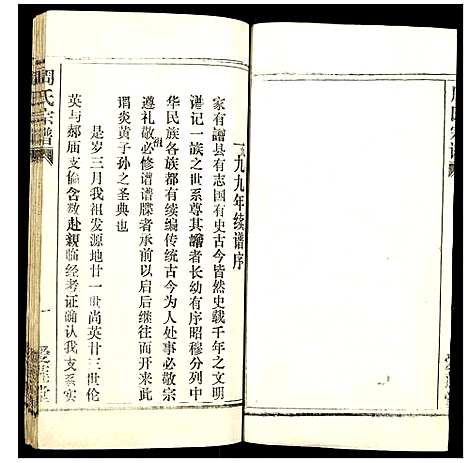 一九九九年续谱序
家有谱县有志国有史古今皆然史载千年之文明
谱记一族之世系尊其谱者长幼有序昭穆分列中
华民族各族都有续编传统古今为人处事必敬宗
遵礼敬祖必修谱谱牒者承前以启后继往而开来此
谓炎黄子孙之圣典也
是岁三月我祖发源地廿一世尚英廿三世伦
英与郝庙支倫含数赴亲临经考证确认我支系实
周氏宗谱
一
爱莲堂